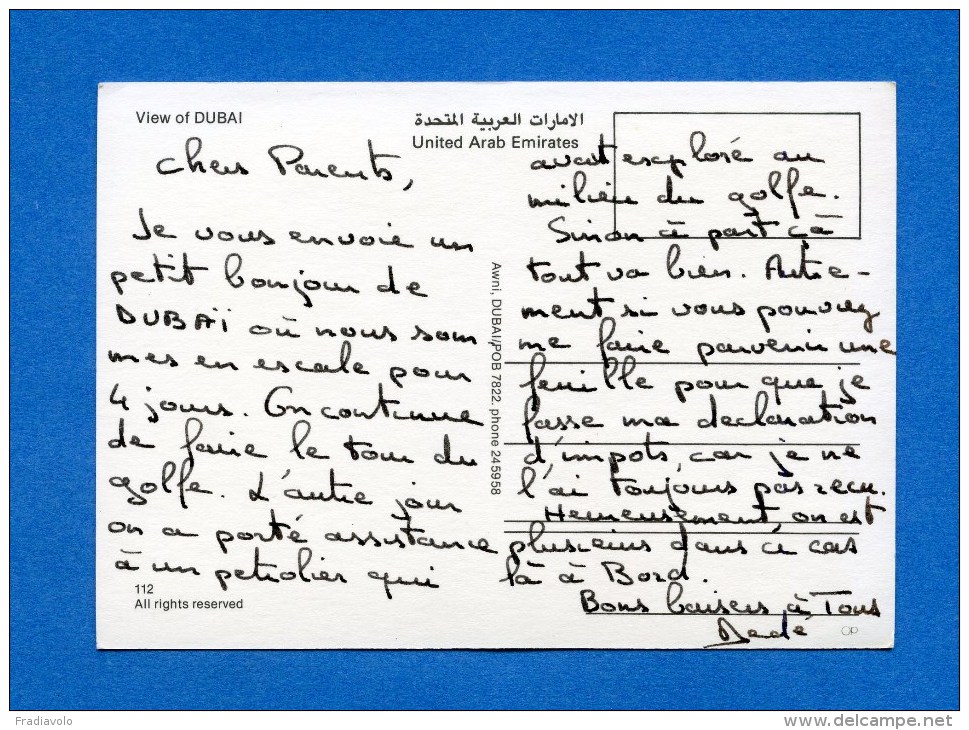 View of DUBAI
الامارات العربية المتحدة
United Arab Emirates
Chers Parents,
Je vous envoie un
petit bonjour de
DUBAÏ où nous som
mes en escale pour
4 jours. On continue
de faire le tour du
golfe. L'autre jour
on a porté assistance
à un petrolier qui
112
All rights reserved
Awni, DUBAI/POB 7822. phone 245958
avait explosé au
milieu du golfe.
Sinon à part çà
tout va bien. Autre-
ment si vous pouvez
me faire parvenir une
feuille pour que je
fasse ma declaration
d'impots, car je ne
l'ai toujours pas recu.
Heureusement, on est
plusieurs dans ce cas
là à Bord.
Bons baisers à Tous
Dédé
Fradiavolo
www.delcampe.net